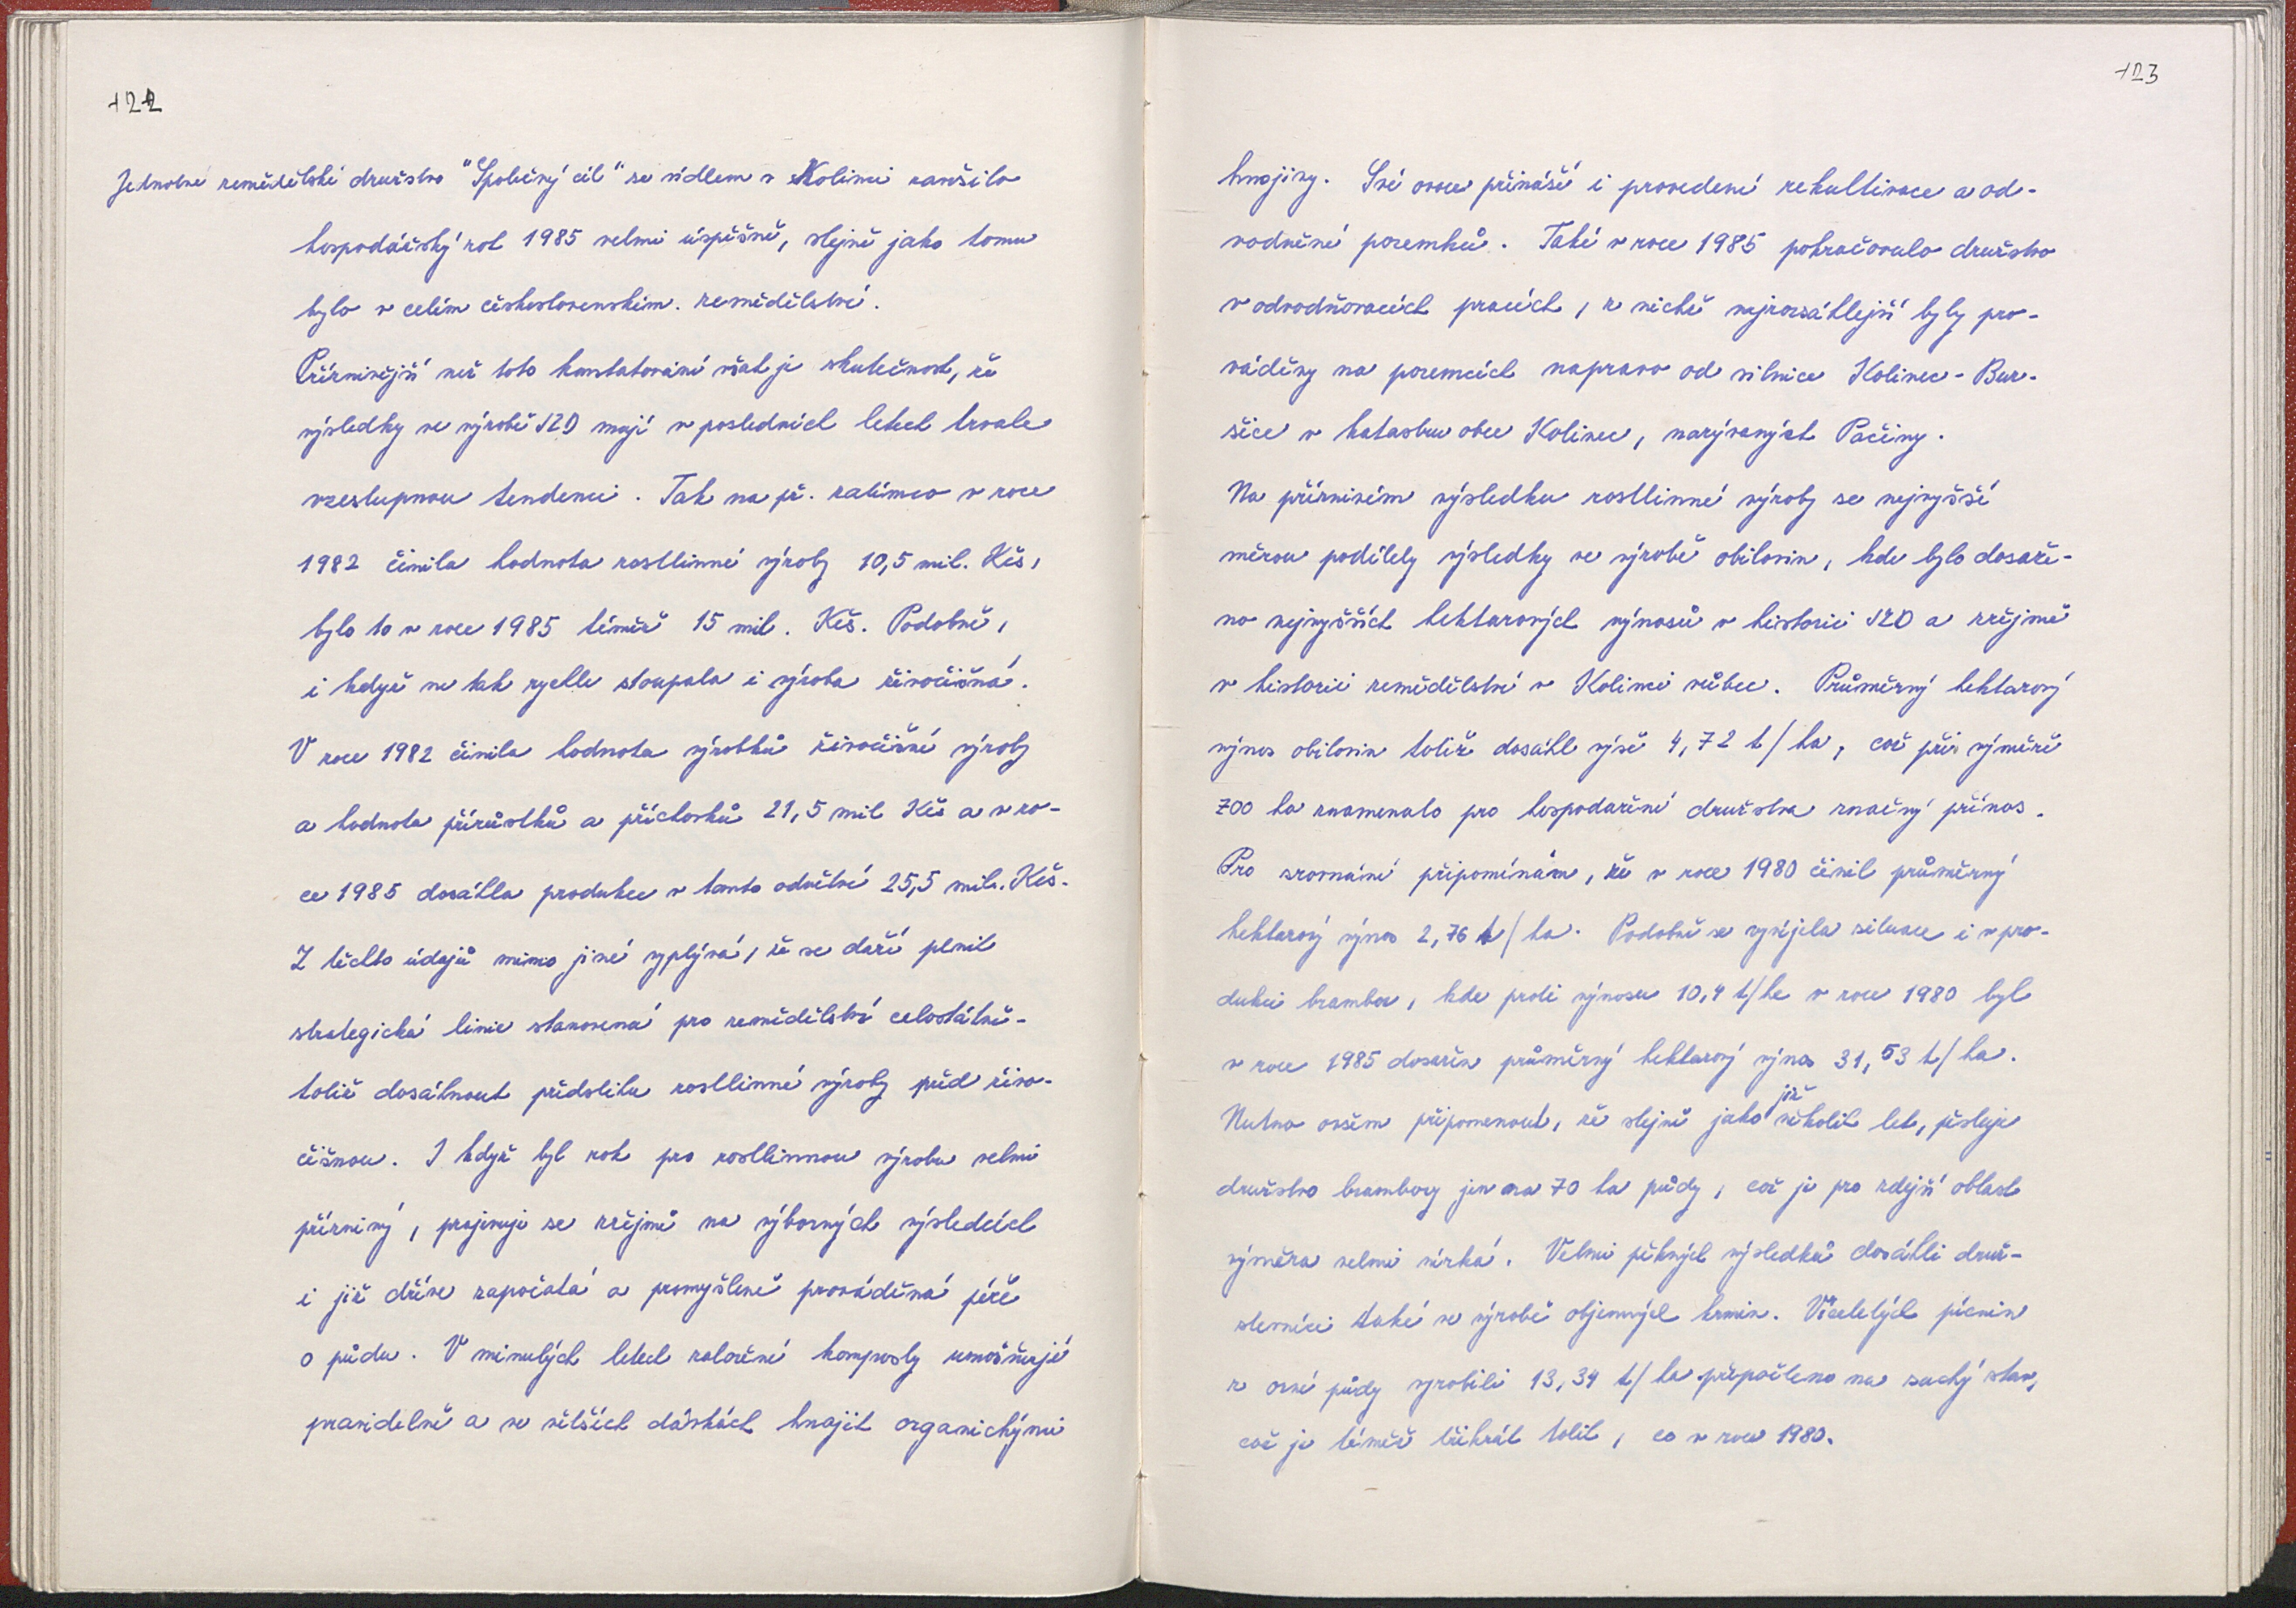 122
Jednotné zemědělské družstvo "Společný cíl" se sídlem v Kolinci završilo
hospodářský rok 1985 velmi úspěšně, stejně jako tomu
bylo v celém československém. zemědělství.
Příznivější než toto konstatování však je skutečnost, že
výsledky ve výrobě JZD mají v posledních letech trvale
vzestupnou tendenci. Tak na př. zatímco v roce
1982 činila hodnota rostlinné výroby 10,5 mil. Kčs,
bylo to v roce 1985 téměř 15 mil. Kčs. Podobně,
i když ne tak rychle stoupala i výroba živočišná.
V roce 1982 činila hodnota výrobků živočišné výroby
a hodnota přírůstků a příchovků 21,5 mil Kčs a v ro-
ce 1985 dosáhla produkce v tomto odvětví 25,5 mil. Kčs.
Z těchto údajů mimo jiné vyplývá, že se daří plnit
strategická linie stanovená pro zemědělství celostátně-
totiž dosáhnout předstihu rostlinné výroby před živo-
čišnou. I když byl rok pro rostlinnou výrobu velmi
příznivý, projevuje se zřejmě na výborných výsledcích
i již dříve započatá a promyšleně prováděná péče
o půdu. V minulých letech založené komposty umožňují
pravidelně a ve větších dávkách hnojit organickými
123
hnojivy. Své ovoce přináší i provedené rekultivace a od-
vodnění pozemků. Také v roce 1985 pokračovalo družstvo
v odvodňovacích pracích, z nichž nejrozsáhlejší byly pro-
váděny na pozemcích napravo od silnice Kolinec - Bur-
šice v katastru obce Kolinec, nazývaných Pačiny.
Na příznivém výsledku rostlinné výroby se nejvyšší
měrou podílely výsledky ve výrobě obilovin, kde bylo dosaže-
no nejvyšších hektarových výnosů v historii JZD a zřejmě
v historii zemědělství v Kolinci vůbec. Průměrný hektarový
výnos obilovin totiž dosáhl výše 4,72 t/ha, což při výměře
700 ha znamenalo pro hospodaření družstva značný přínos.
Pro srovnání připomínám, že v roce 1980 činil průměrný
hektarový výnos 2,76 t/ha. Podobně se vyvíjela situace i v pro-
dukci brambor, kde proti výnosu 10,4 t/ha v roce 1980 byl
v roce 1985 dosažen průměrný hektarový výnos 31,53 t/ha.
Nutno ovšem připomenout, že stejně jako již několik let, pěstuje
družstvo brambory jen na 70 ha půdy, což je pro zdejší oblast
výměra velmi nízká. Velmi pěkných výsledků dosáhli druž-
stevníci také ve výrobě objemných krmin. Víceletých pícnin
z orné půdy vyrobili 13,34 t/ha přepočteno na suchý stav,
což je téměř třikrát tolik, co v roce 1980.